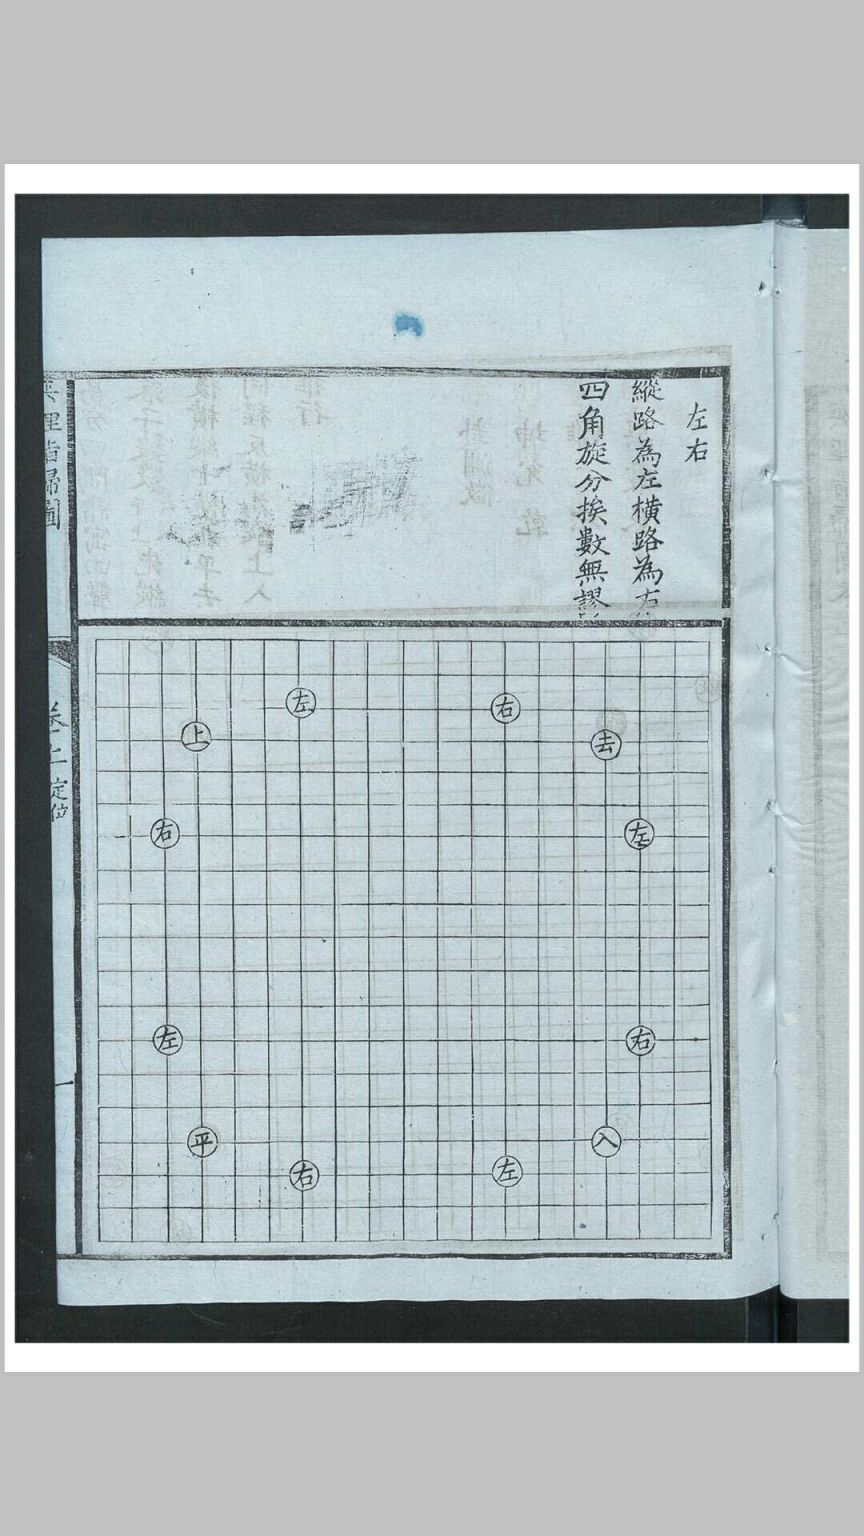 左右
縱路為左橫路為右
四角旋分挨數無謬
左
右
上
去
右
左
左
右
平
入
右
左
弈理指歸圖
卷上
定位
一